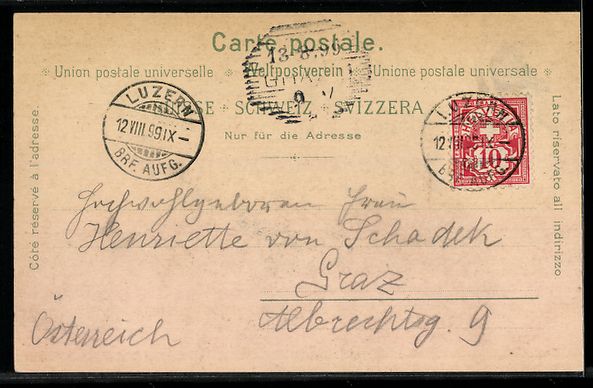 Carte postale.
* Union postale universelle * Weltpostverein * Unione postale universale *
SUISSE * SCHWEIZ * SVIZZERA
Nur für die Adresse
Côté réservé à l'adresse.
Lato riservato all indirizzo
13.8.99
LUZERN
12 VIII 99 IX
BRF. AUFG.
LUZERN
12 VIII 99 IX
BRF. AUFG.
HELVETIA
10
Hochwohlgeboren Frau
Henriette von Schadek
Graz
Albrechtg. 9
Österreich